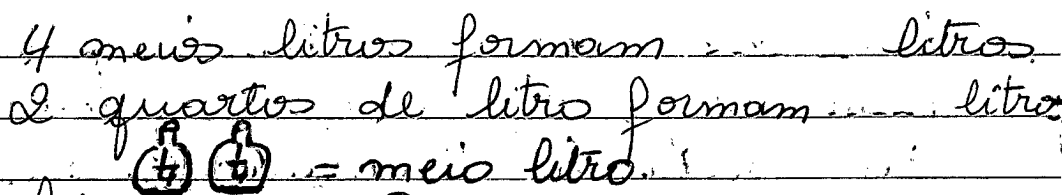 4 meios litros formam ..... litros.
2 quartos de litro formam ..... litro
1/4 1/4 = meio litro.